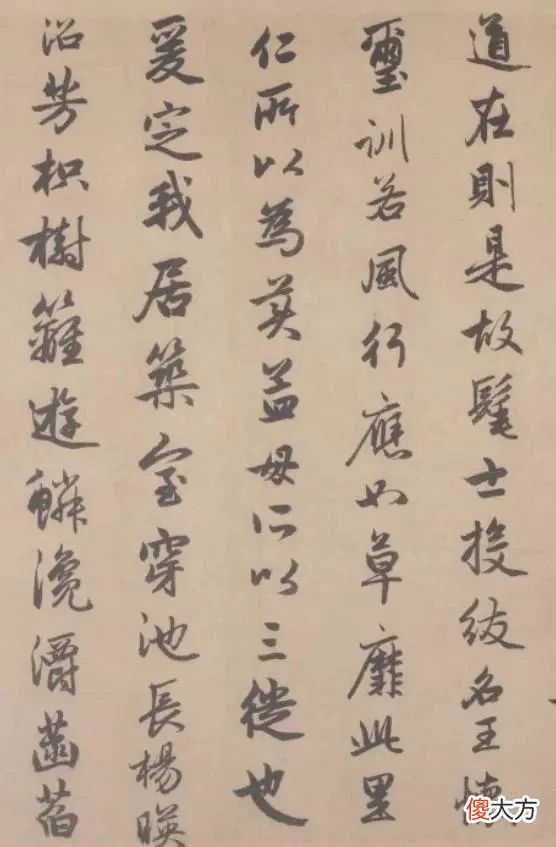 道在則是故髦士投紱名王懷
璽訓若風行應如草靡此里
仁所以為美孟母所以三徙也
爰定我居築室穿池長楊暎
沼芳枳樹籬遊鱗瀺灂菡萏
傻大方